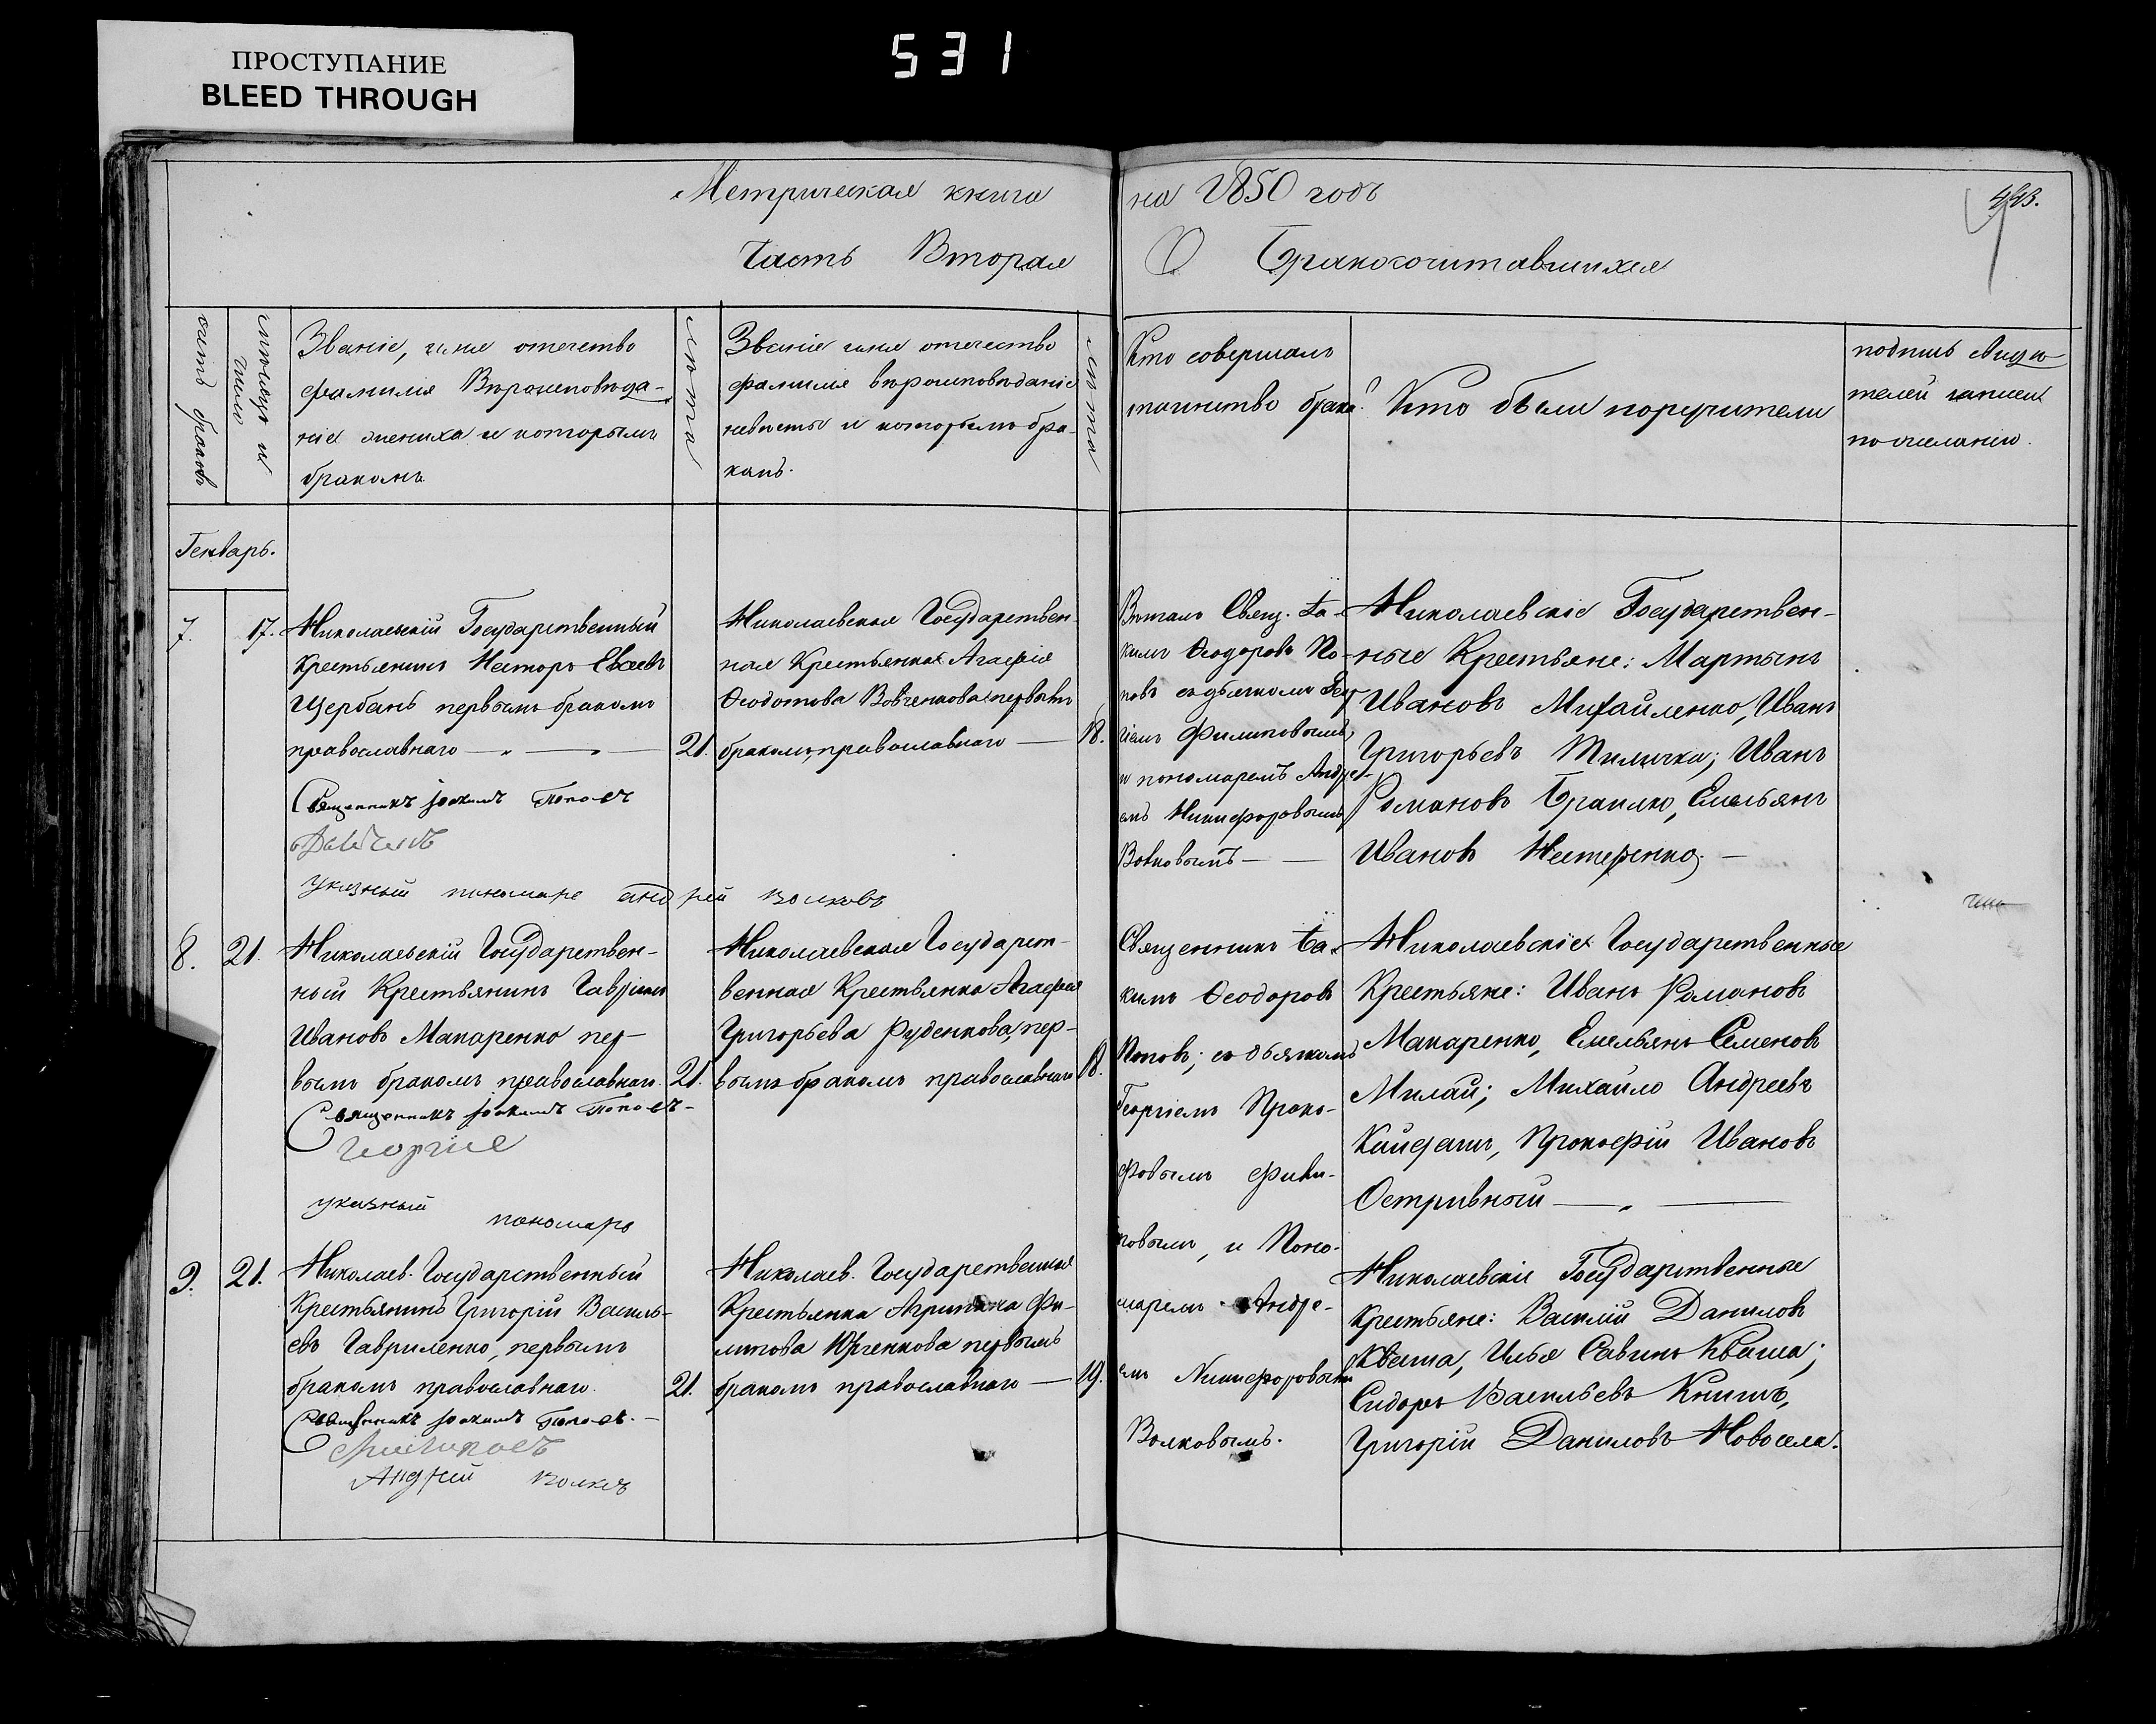 ПРОСТУПАНИЕ
BLEED THROUGH
531
Метрическая книга на 1850 годъ
Часть Вторая О Бракосочитавшихся
счетъ браковъ
мѣсяцъ и число
Званіе, имя отечество
фамилія Вѣроисповѣда-
ніе жениха и которымъ
бракомъ
лѣта
Званіе имя отечество
фамилія вѣроисповѣданіе
невѣсты и которымъ бра-
комъ.
лѣта
Кто совершалъ
таинство брака?
Кто были поручители
подпись свидѣ-
телей записи
по желанію.
Генварь.
7. 17.
Николаевскій Государственный
Крестьянинъ Несторъ Евсеевъ
Щербань первымъ бракомъ
православнаго 21.
Священникъ Іоакимъ Поповъ
указный пономарь андрей волковъ
Николаевская Государствен-
ная Крестьянка Агафія
Ѳеодотова Вовченкова первымъ
бракомъ, православнаго 18.
Вѣнчалъ Свящ. Іа-
кимъ Ѳеодоровъ По-
повъ съ дьячкомъ Геор
гіемъ Филиповымъ,
и пономаремъ Андре-
емъ Никифоровымъ
Волковымъ
Николаевскіе Государствен-
ные Крестьяне: Мартынъ
Ивановъ Михайленко, Иванъ
Григорьевъ Тиличка; Иванъ
Романовъ Браило, Емельянъ
Ивановъ Нестеренко.
8. 21.
Николаевскій Государствен-
ный Крестьянинъ Гавріилъ
Ивановъ Макаренко пер-
вымъ бракомъ православнаго. 21.
Священникъ Іоакимъ Поповъ
указный пономарь
Николаевская Государст-
венная Крестьянка Агафія
Григорьева Руденкова, пер-
вымъ бракомъ православнаго 18.
Священникъ Іа-
кимъ Ѳеодоровъ
Поповъ; съ дьячкомъ
Георгіемъ Проко-
фовымъ Фили-
повымъ, и Поно-
маремъ Андре-
емъ Никифоровымъ
Волковымъ.
Николаевскіе Государственные
Крестьяне: Иванъ Романовъ
Макаренко, Емельянъ Семеновъ
Милай; Михайло Андреевъ
Кайдашъ, Прокофій Ивановъ
Остривный
9. 21.
Николаев. Государственный
Крестьянинъ Григорій Василь-
евъ Гавриленко, первымъ
бракомъ православнаго. 21.
Священникъ Іоакимъ Поповъ.
Андрей волковъ
Николаев. Государственная
Крестьянка Агрипина Фи-
липова Юрченкова первымъ
бракомъ православнаго 19.
Николаевскіе Государственные
Крестьяне: Василій Даниловъ
Кваша, Илья Савинъ Кваша;
Сидоръ Васильевъ Книшъ,
Григорій Даниловъ Новосела.